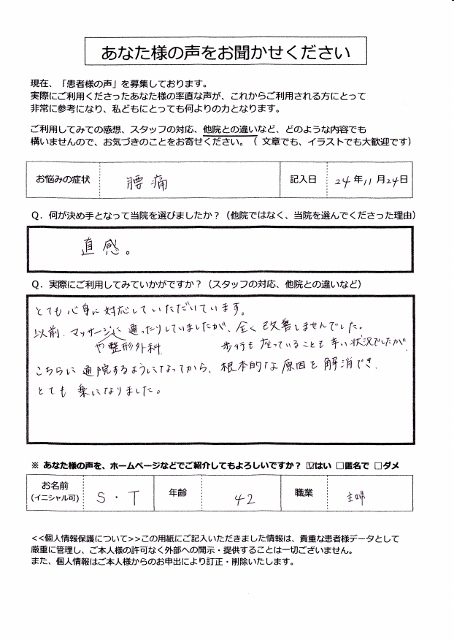 あなた様の声をお聞かせください
現在、「患者様の声」を募集しております。
実際にご利用くださったあなた様の率直な声が、これからご利用される方にとって
非常に参考になり、私どもにとっても何よりの力となります。
ご利用してみての感想、スタッフの対応、他院との違いなど、どのような内容でも
構いませんので、お気づきのことをお寄せください。（ 文章でも、イラストでも大歓迎です）
お悩みの症状 腰痛 記入日 24年11月24日
Q．何が決め手となって当院を選びましたか？（他院ではなく、当院を選んでくださった理由）
直感。
Q．実際にご利用してみていかがですか？（スタッフの対応、他院との違いなど）
とても心身に対応していただいています。
以前、マッサージに通ったりしていましたが、全く改善しませんでした。
や整形外科 歩行も座っていることも辛い状況でしたが、
こちらに通院するようになってから、根本的な原因を解消でき、
とても楽になりました。
※ あなた様の声を、ホームページなどでご紹介してもよろしいですか？ ☑はい □匿名で □ダメ
お名前 S・T 年齢 42 職業 主婦
(イニシャル可)
<<個人情報保護について>>この用紙にご記入いただきました情報は、貴重な患者様データとして
厳重に管理し、ご本人様の許可なく外部への開示・提供することは一切ございません。
また、個人情報はご本人様からのお申出により訂正・削除いたします。